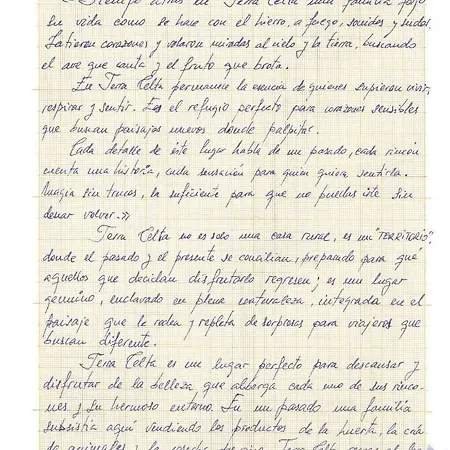 Tiempo atrás en Terra Celta una familia forjó
su vida como se hace con el hierro, a fuego, sonidos y sudor.
Latieron corazones y volaron miradas al cielo y la tierra, buscando
el ave que canta y el fruto que brota.
En Terra Celta permanece la esencia de quienes supieron vivir,
respirar y sentir. Es el refugio perfecto para corazones sensibles
que buscan paisajes nuevos donde palpitar.
Cada detalle de este lugar habla de un pasado, cada rincón
cuenta una historia, cada sensación para quien quiera sentirla.
Magia sin trucos, la suficiente para que no puedas irte sin
desear volver.»
Terra Celta no es solo una casa rural, es un "TERRITORIO",
donde el pasado y el presente se concilian, preparado para qué
aquellos que decidan disfrutarlo regresen; es un lugar
genuino, enclavado en plena naturaleza, integrada en el
paisaje que le rodea y repleta de sorpresas para viajeros que
buscan diferente.
Terra Celta es un lugar perfecto para descansar y
disfrutar de la belleza que alberga cada uno de sus rinco-
nes y su hermoso entorno. En un pasado una familia
subsistía aquí vendiendo los productos de la huerta, la cría
de animales y la cosecha